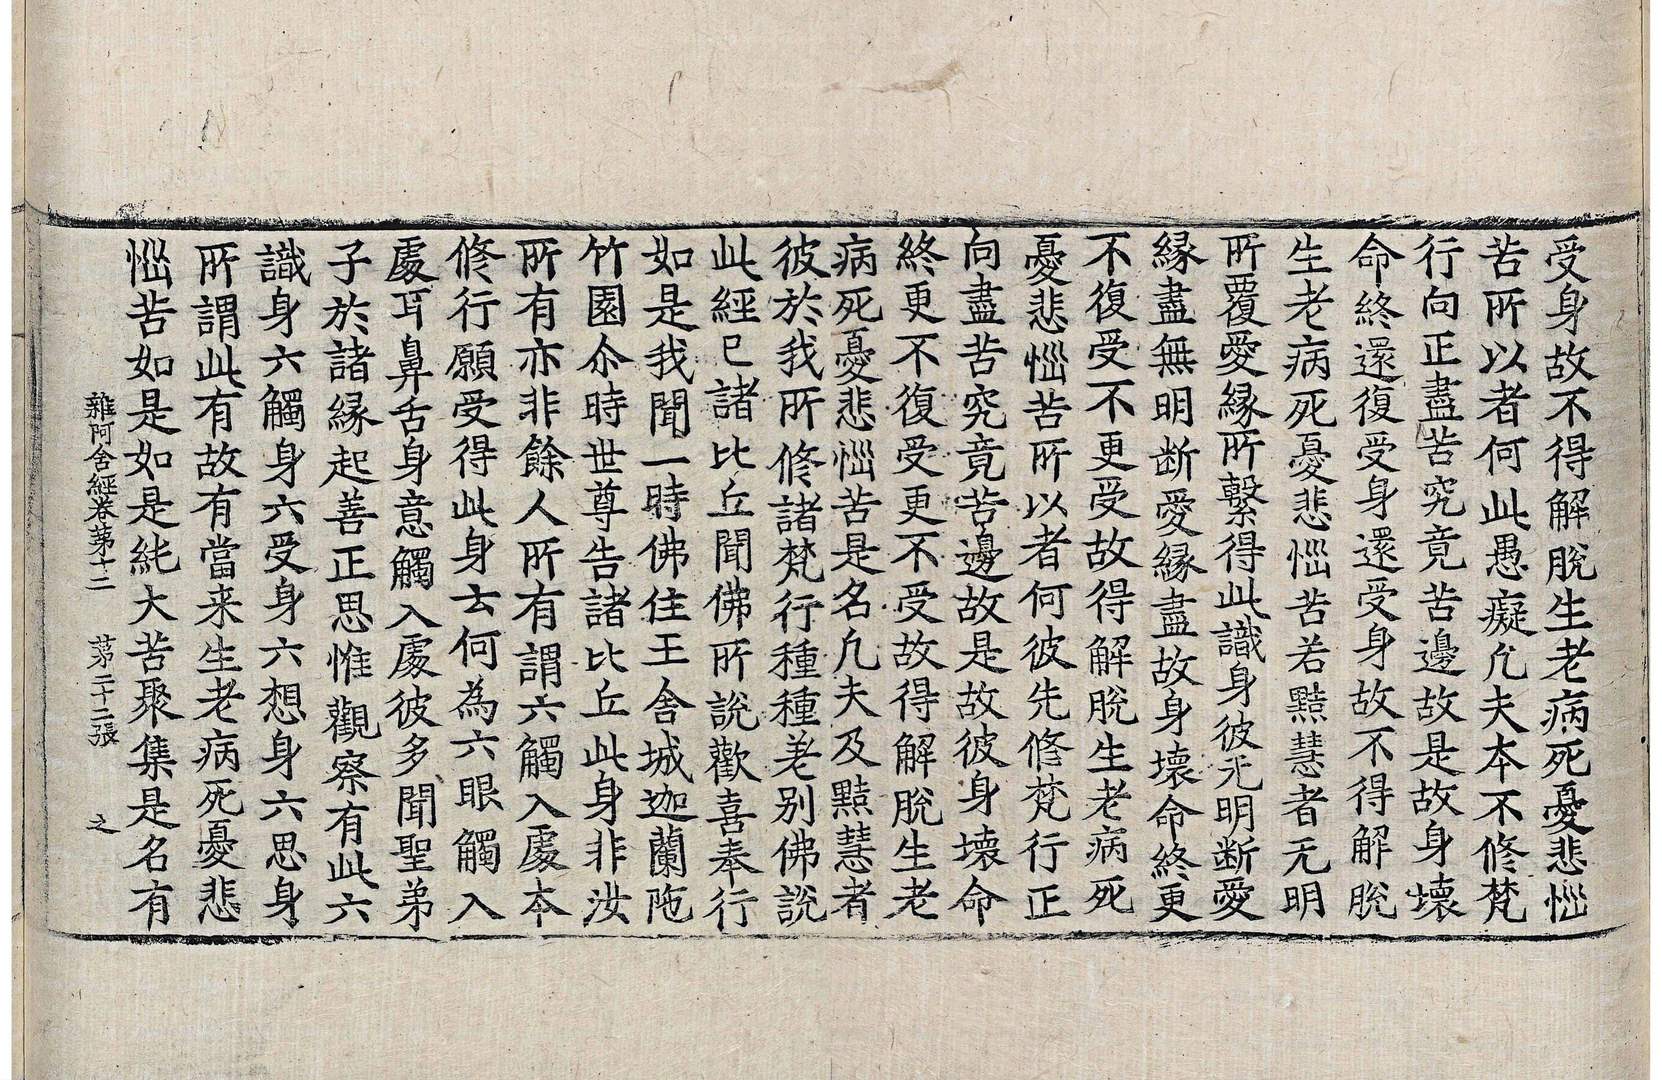 受身故不得解脫生老病死憂悲惱
苦所以者何此愚癡凡夫本不修梵
行向正盡苦究竟苦邊故是故身壞
命終還復受身還受身故不得解脫
生老病死憂悲惱苦若黠慧者无明
所覆愛緣所繫得此識身彼无明斷愛
緣盡無明斷愛緣盡故身壞命終更
不復受不更受故得解脫生老病死
憂悲惱苦所以者何彼先修梵行正
向盡苦究竟苦邊故是故彼身壞命
終更不復受更不受故得解脫生老
病死憂悲惱苦是名凡夫及黠慧者
彼於我所修諸梵行種種差别佛說
此經已諸比丘聞佛所說歡喜奉行
如是我聞一時佛住王舍城迦蘭陁
竹園尒時世尊告諸比丘此身非汝
所有亦非餘人所有謂六觸入處本
修行願受得此身云何為六眼觸入
處耳鼻舌身意觸入處彼多聞聖弟
子於諸緣起善正思惟觀察有此六
識身六觸身六受身六想身六思身
所謂此有故有當来生老病死憂悲
惱苦如是如是純大苦聚集是名有
雜阿含經卷苐十二 苐二十二張 之